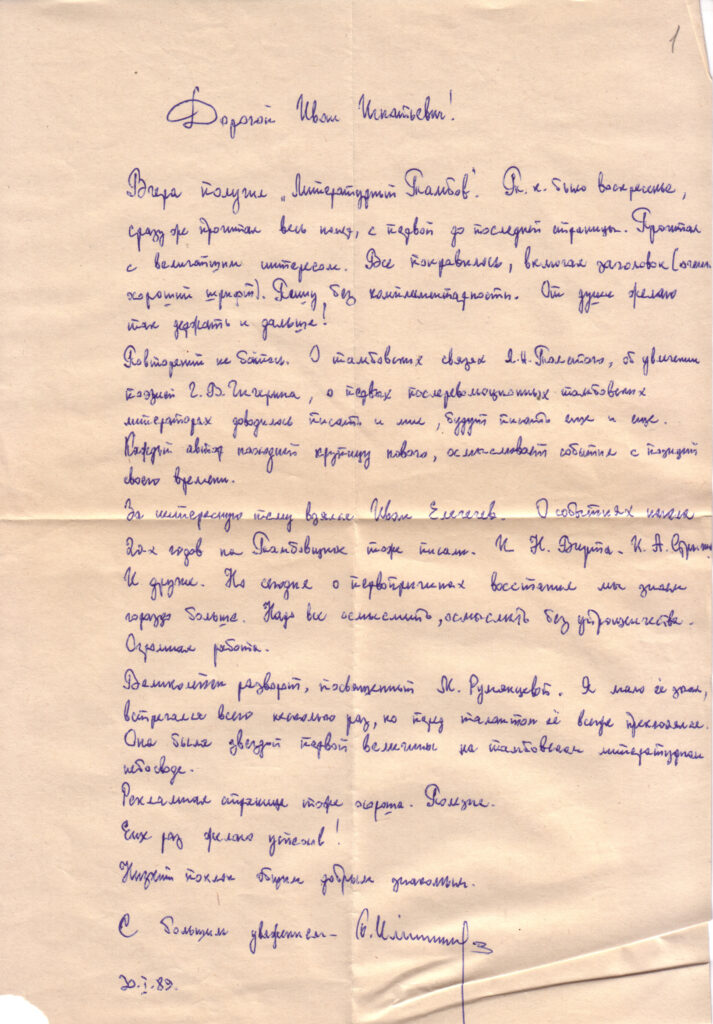 1
Дорогой Иван Игнатьевич!
Вчера получил „Литературный Тамбов". Т. к. было воскресенье,
сразу же прочитал весь номер, с первой до последней страницы. Прочитал
с величайшим интересом. Все понравилось, включая заголовок (очень
хороший шрифт). Пишу без комплементарности. От души желаю
так держать и дальше!
Повторений не бойтесь. О тамбовских связях Л.Н. Толстого, об увлечении
поэзией Г.В. Чичерина, о первых послереволюционных тамбовских
литераторах доводилось писать и мне, будут писать еще и еще.
Каждый автор находит крупицу нового, осмысливает события с позиций
своего времени.
За интересную тему взялся Иван Елегечев. О событиях начала
20-х годов на Тамбовщине тоже писали. И Н. Вирта. И А. Стрыгин
И другие. Но сегодня о первопричинах восстания мы знаем
гораздо больше. Надо все осмыслить, осмыслить без утрошничества.
Огромная работа.
Великолепен разворот, посвященный М. Румянцевой. Я мало её знал,
встречался всего несколько раз, но перед талантом её всегда преклонялся.
Она была звездой первой величины на тамбовском литературном
небосводе.
Рекламная страница тоже хороша. Полезна.
Еще раз желаю успехов!
Низкий поклон общим добрым знакомым.
С большим уважением –
20.I.89.